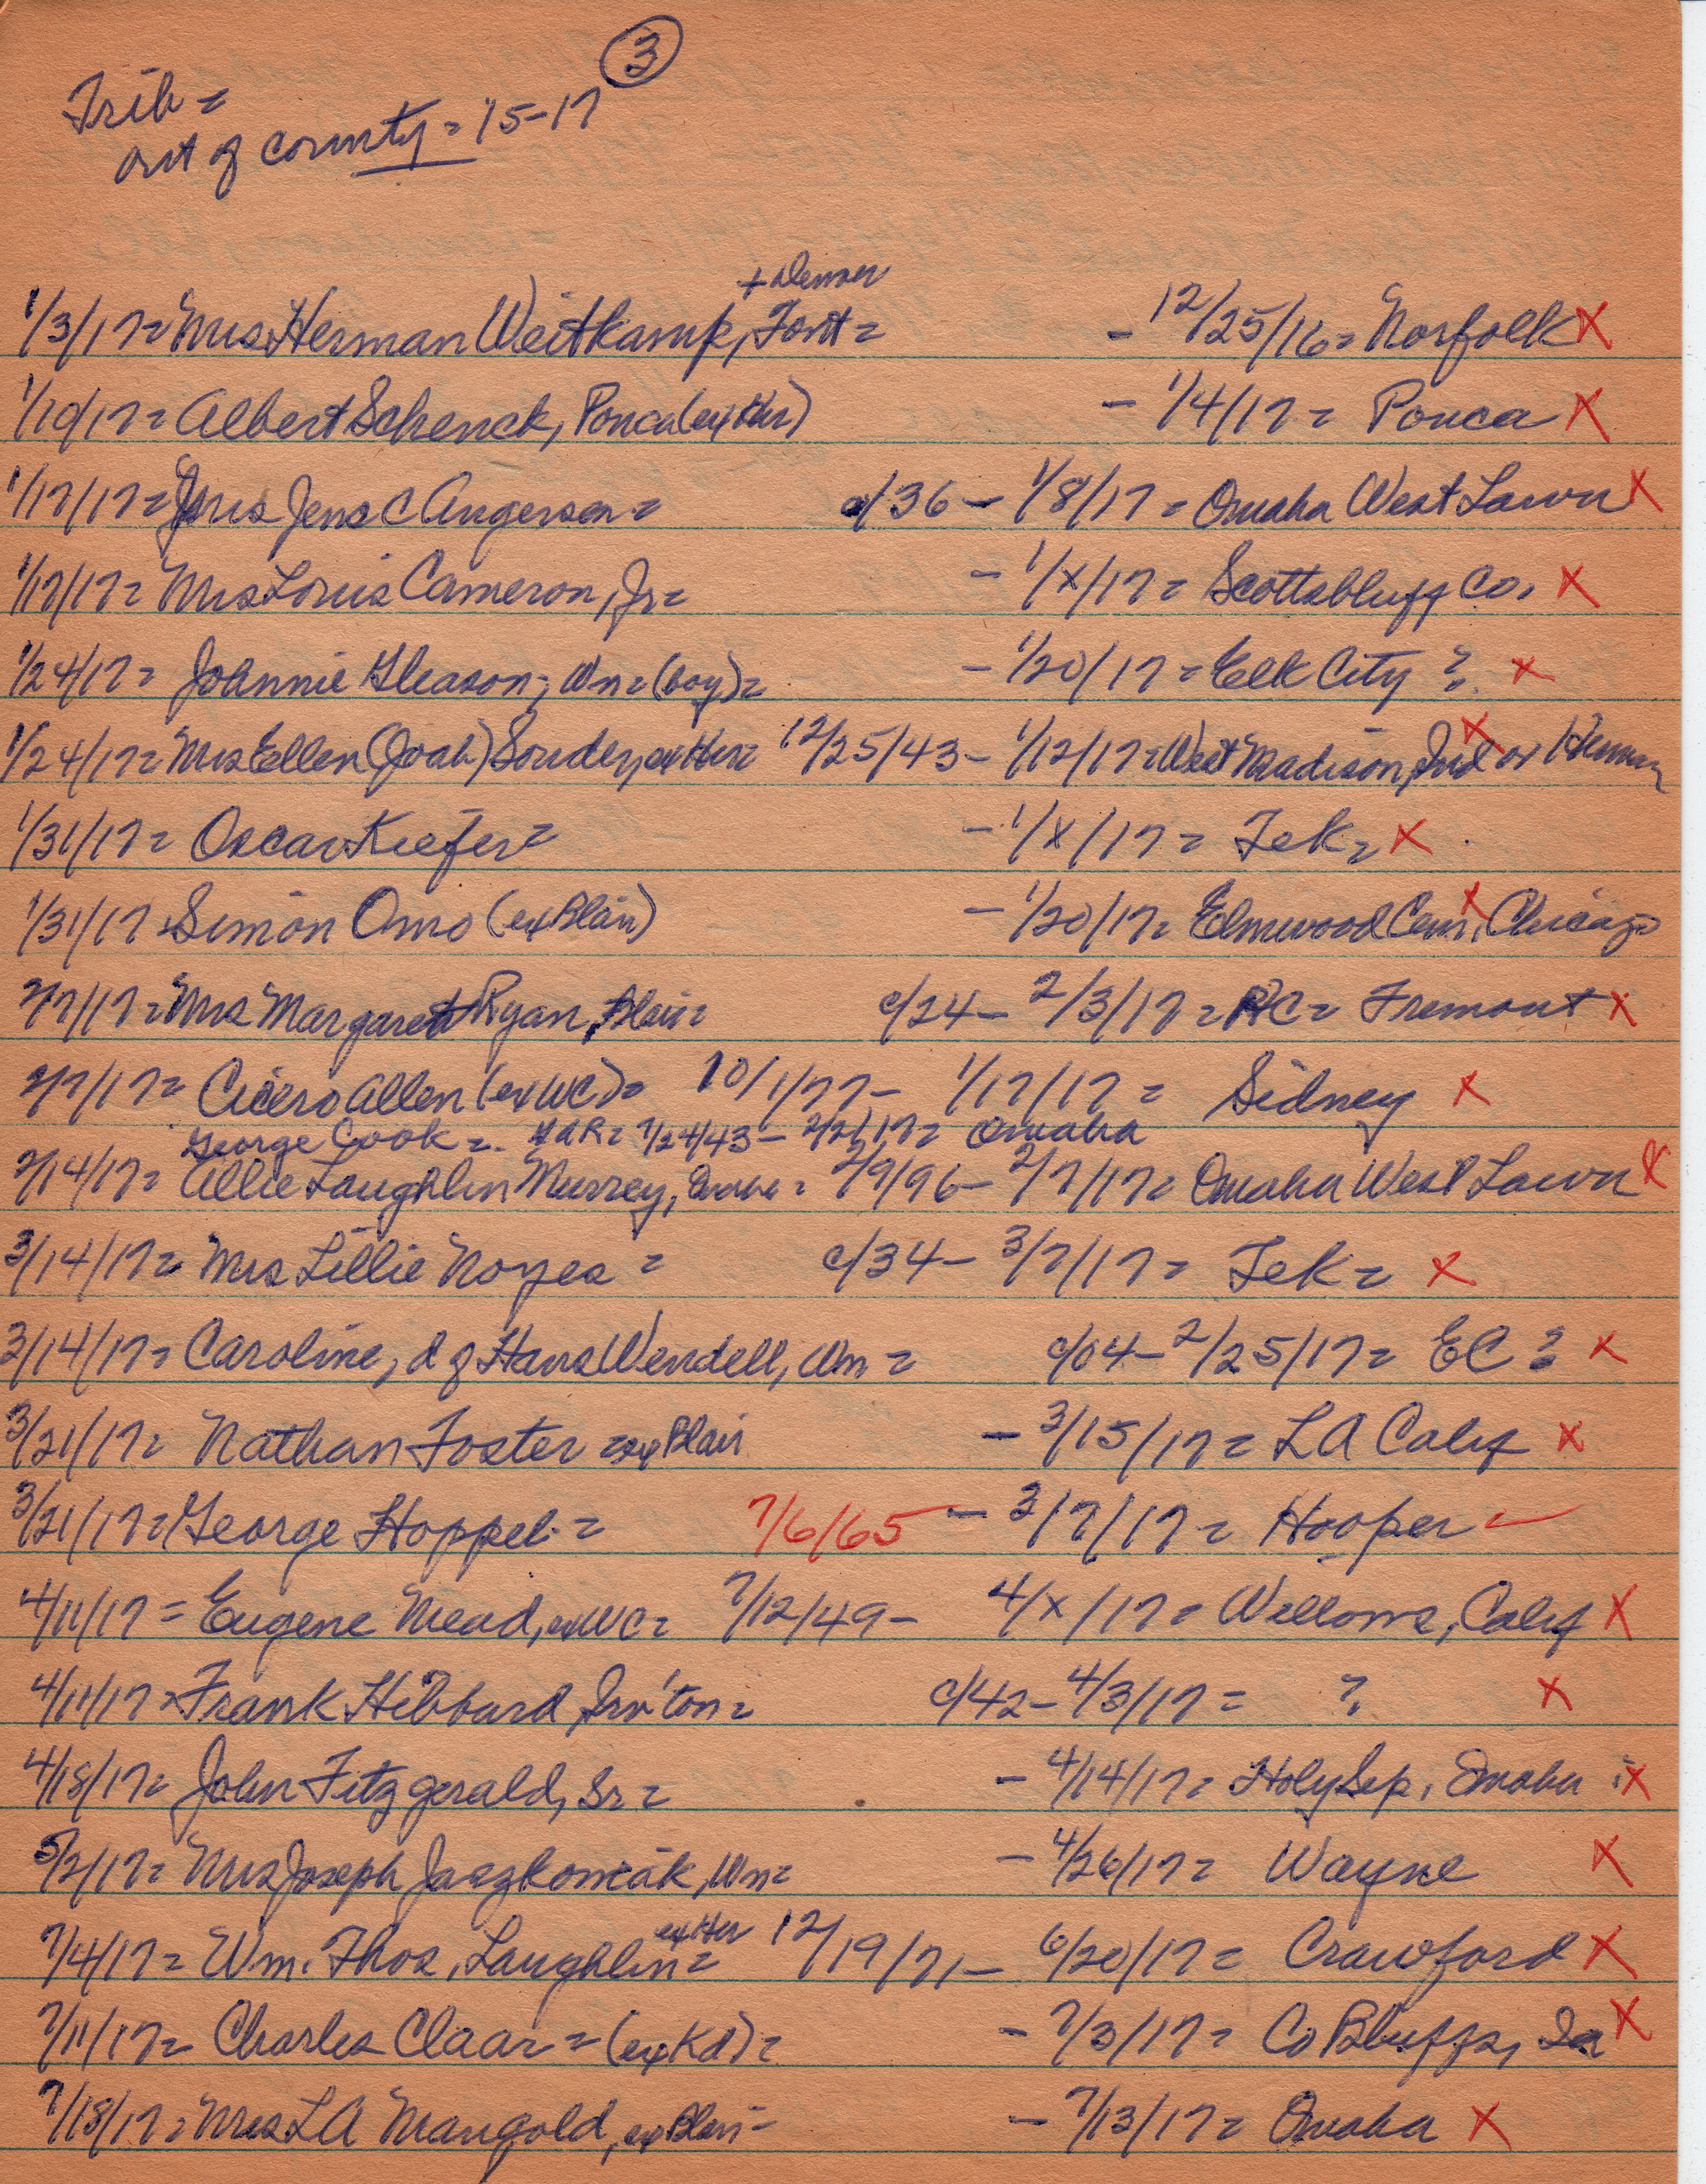 3
Trib =
out of county = 15-17
1/3/17 = Mrs. Herman Weitkamp, Font = - 12/25/16 = Norfolk X
1/10/17 = Albert Schenck, Ponca (ex Her) - 1/4/17 = Ponca X
1/17/17 = Mrs Jens C Angersen = c/36 - 1/8/17 = Omaha West Lawn X
1/17/17 = Mrs Louis Cameron, Jr = - 1/x/17 = Scottsbluff Co. X
1/24/17 = Johnnie Gleason, Wn = (boy) = - 1/20/17 = Elk City ? X
1/24/17 = Mrs Ellen (Joah) Souder, ex Her = 12/25/43 - 1/12/17 = West Madison, Ind or Herman X
1/31/17 = Oscar Kiefer = - 1/x/17 = Tek = X
1/31/17 = Simon Omo (ex Blair) - 1/20/17 = Elmwood Cem, Chicago X
2/7/17 = Mrs Margaret Ryan, Blair = c/24 - 2/3/17 = RC = Fremont X
2/7/17 = Cicero Allen (ex WC) = 10/1/77 - 1/17/17 = Sidney X
George Cook = GAR = 7/24/43 - 2/2/17 = Omaha
2/14/17 = Allie Laughlin Murrey, Omaha = 2/9/96 - 2/7/17 = Omaha West Lawn X
3/14/17 = Mrs Lillie Noyes = c/34 - 3/7/17 = Tek = X
3/14/17 = Caroline, d of Hans Wendell, Wn = c/04 - 2/25/17 = EC ? X
3/21/17 = Nathan Foster = ex Blair - 3/15/17 = LA Calif X
3/21/17 = George Hoppel = 7/6/65 - 3/7/17 = Hooper ✓
4/11/17 = Eugene Mead, ex WC = 7/12/49 - 4/x/17 = Willows, Calif X
4/11/17 = Frank Hibbard, Irv'ton = c/42 - 4/3/17 = ? X
4/18/17 = John Fitzgerald, Sr = - 4/14/17 = Holy Sep, Omaha X
5/2/17 = Mrs Joseph Jaszkowiak, Wn = - 4/26/17 = Wayne X
7/4/17 = Wm. Thos. Laughlin = ex Her 12/19/71 - 6/20/17 = Crawford X
7/11/17 = Charles Claar = (ex Kd) = - 7/3/17 = Co Bluffs, Ia X
7/18/17 = Mrs LA Mangold, ex Blair = - 7/13/17 = Omaha X